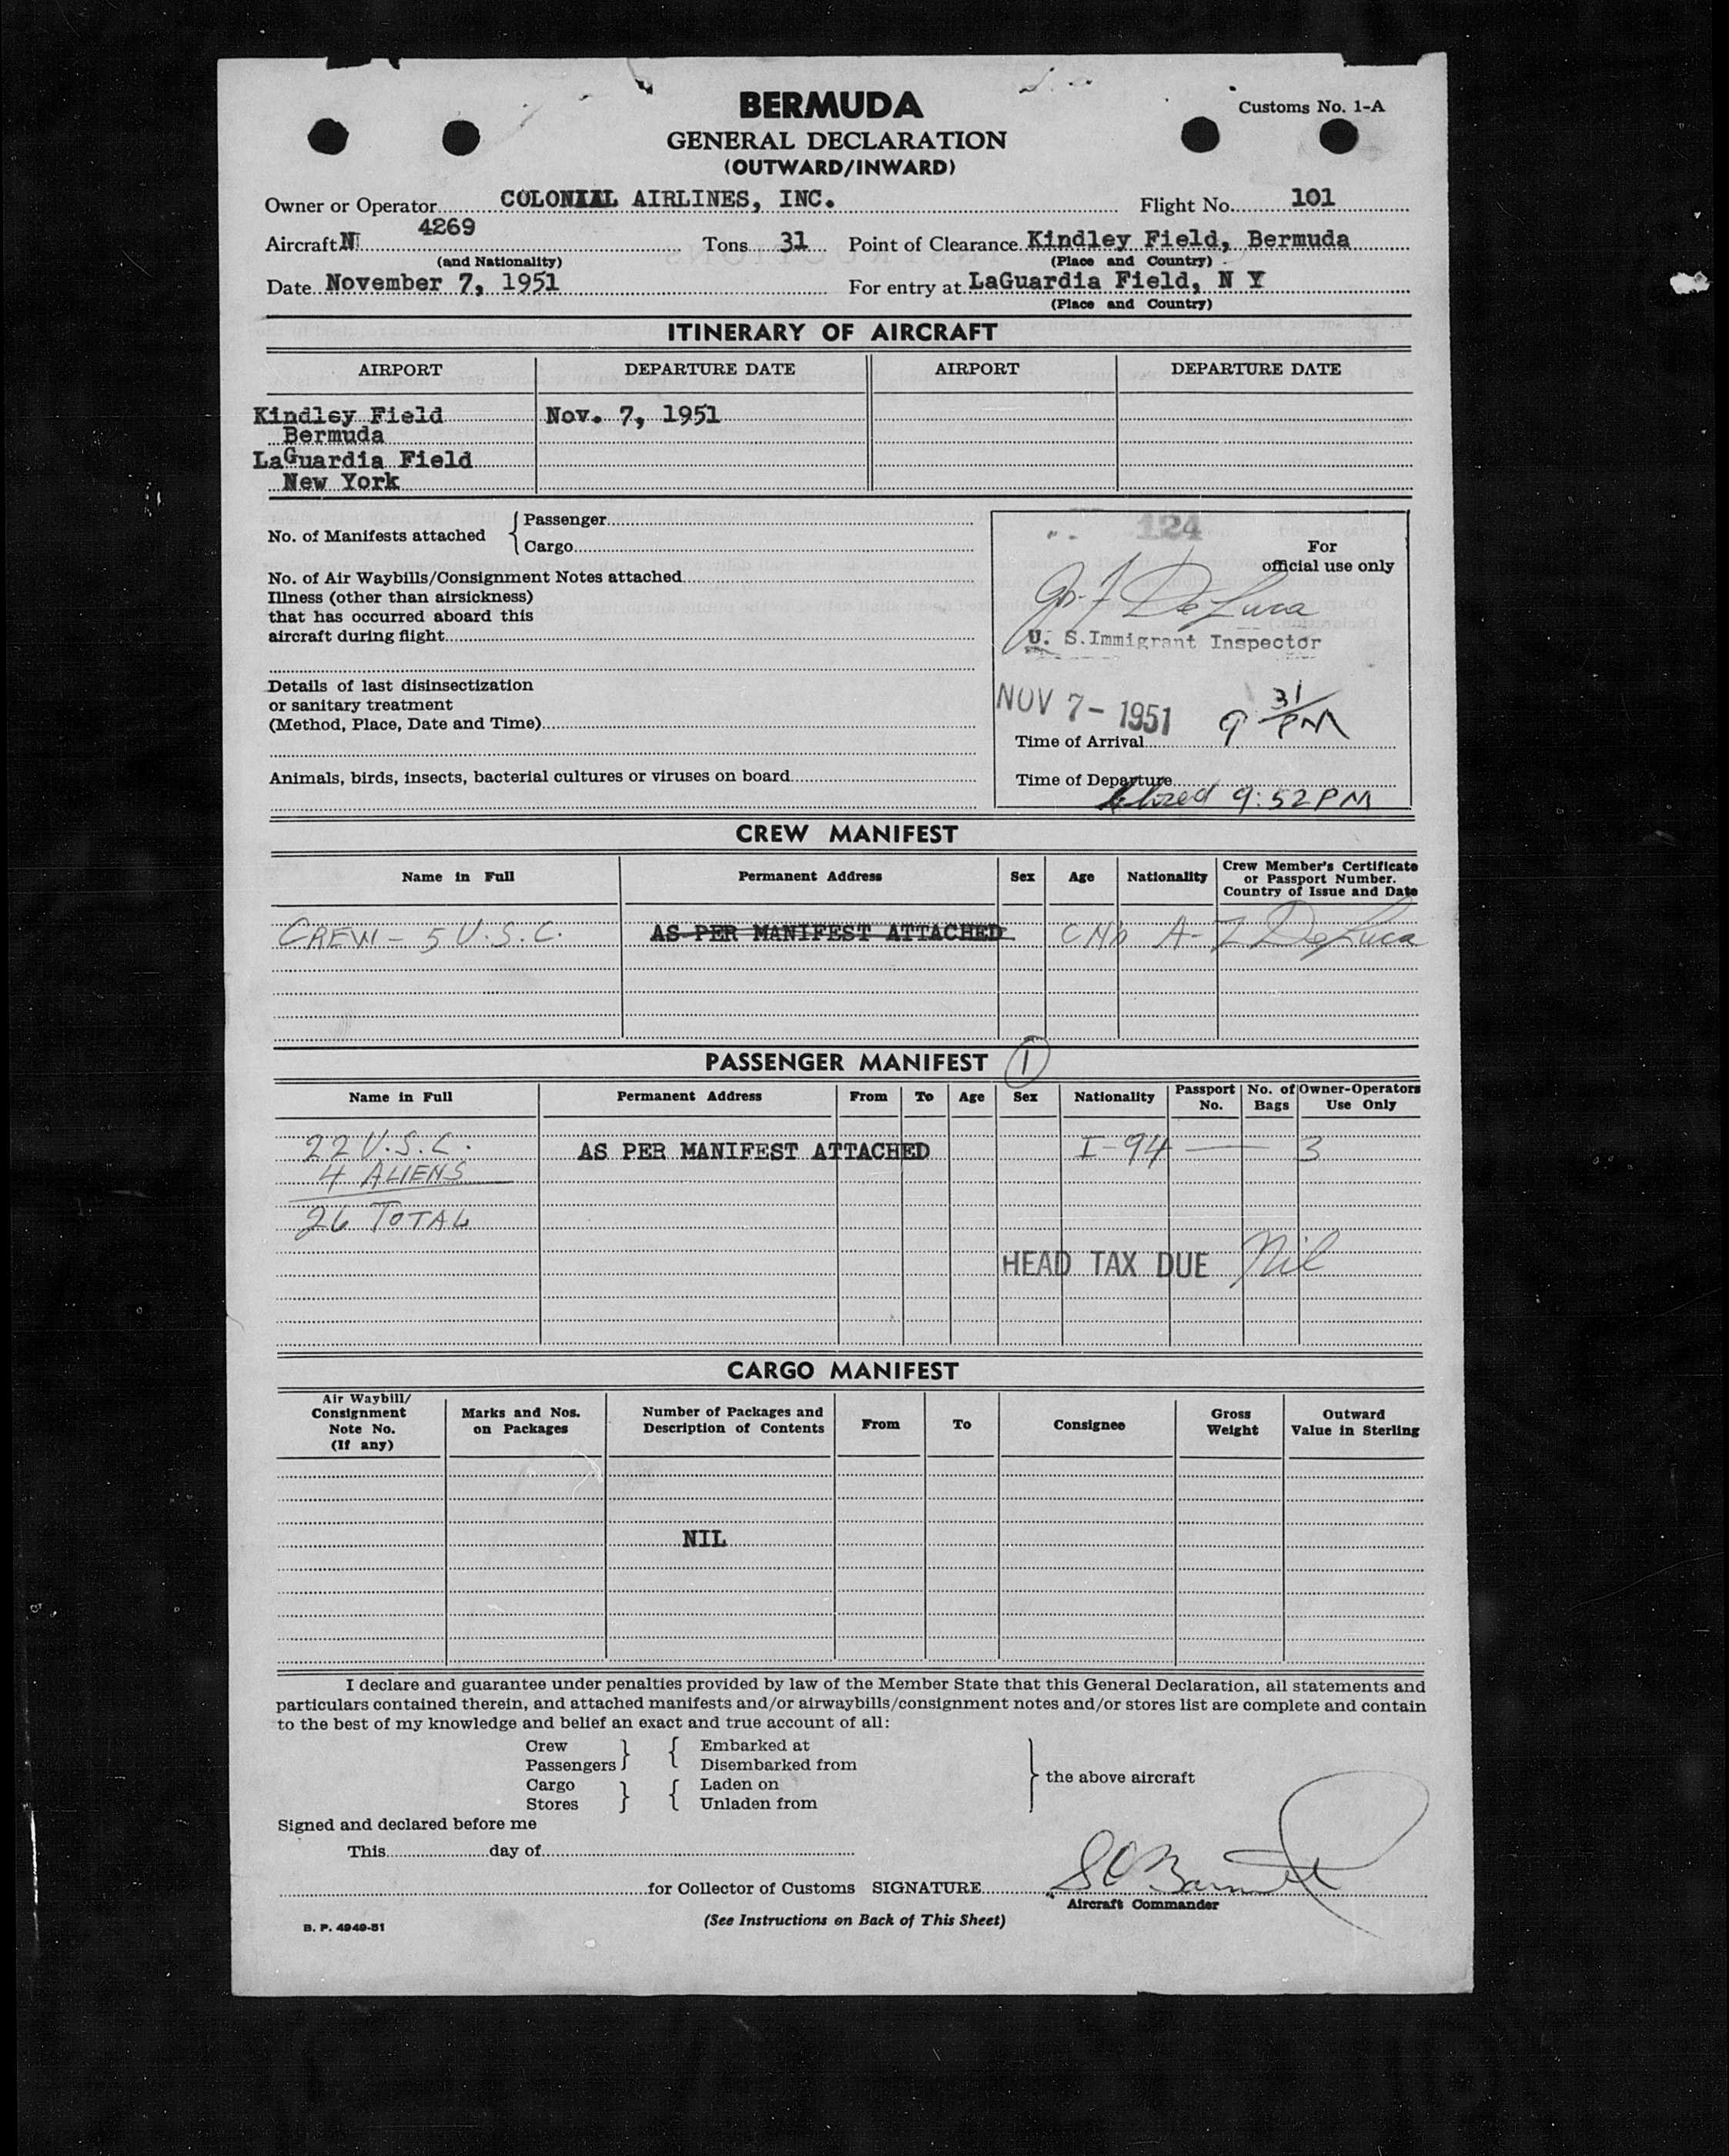 BERMUDA
Customs No. 1-A
GENERAL DECLARATION
(OUTWARD/INWARD)
Owner or Operator COLONIAL AIRLINES, INC. Flight No. 101
Aircraft N 4269 Tons 31 Point of Clearance Kindley Field, Bermuda
(and Nationality) (Place and Country)
Date November 7, 1951 For entry at LaGuardia Field, N Y
(Place and Country)
ITINERARY OF AIRCRAFT
AIRPORT DEPARTURE DATE AIRPORT DEPARTURE DATE
Kindley Field Nov. 7, 1951
Bermuda
LaGuardia Field
New York
No. of Manifests attached { Passenger
Cargo
No. of Air Waybills/Consignment Notes attached
Illness (other than airsickness)
that has occurred aboard this
aircraft during flight
Details of last disinsectization
or sanitary treatment
(Method, Place, Date and Time)
Animals, birds, insects, bacterial cultures or viruses on board
124
For
official use only
De Luca
U. S. Immigrant Inspector
NOV 7 - 1951 9 31/PM
Time of Arrival
Time of Departure
9:52 PM
CREW MANIFEST
Name in Full Permanent Address Sex Age Nationality Crew Member's Certificate or Passport Number. Country of Issue and Date
CREW - 5 U.S.C. AS PER MANIFEST ATTACHED De Luca
PASSENGER MANIFEST 1
Name in Full Permanent Address From To Age Sex Nationality Passport No. No. of Bags Owner-Operators Use Only
22 U.S.C. AS PER MANIFEST ATTACHED I-94 — 3
4 ALIENS
26 TOTAL
HEAD TAX DUE Nil
CARGO MANIFEST
Air Waybill/ Consignment Note No. (If any) Marks and Nos. on Packages Number of Packages and Description of Contents From To Consignee Gross Weight Outward Value in Sterling
NIL
I declare and guarantee under penalties provided by law of the Member State that this General Declaration, all statements and
particulars contained therein, and attached manifests and/or airwaybills/consignment notes and/or stores list are complete and contain
to the best of my knowledge and belief an exact and true account of all:
Crew Embarked at
Passengers } { Disembarked from
Cargo Laden on } the above aircraft
Stores } { Unladen from
Signed and declared before me
This day of
for Collector of Customs SIGNATURE
Aircraft Commander
B. P. 4949-51
(See Instructions on Back of This Sheet)